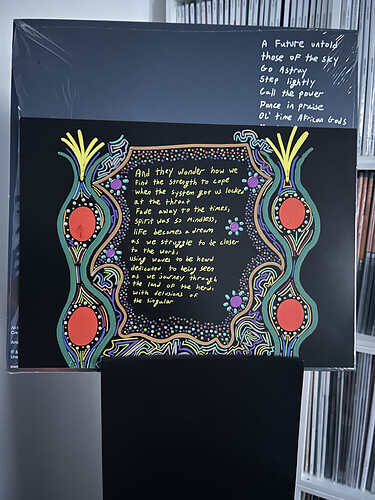 A Future untold
those of the sky
Go Astray
Step lightly
Call the power
Dance in praise
OL' time African Gods
And they wonder how we
Find the strength to cope
when the system got us locked
at the throat
Fade away to the times,
spirit was so mindless,
life becomes a dream
as we struggle to be closer
to the word,
using waves to be heard
dedicated to being seen
as we journey through
the land of the herd,
with delusions of
the singular